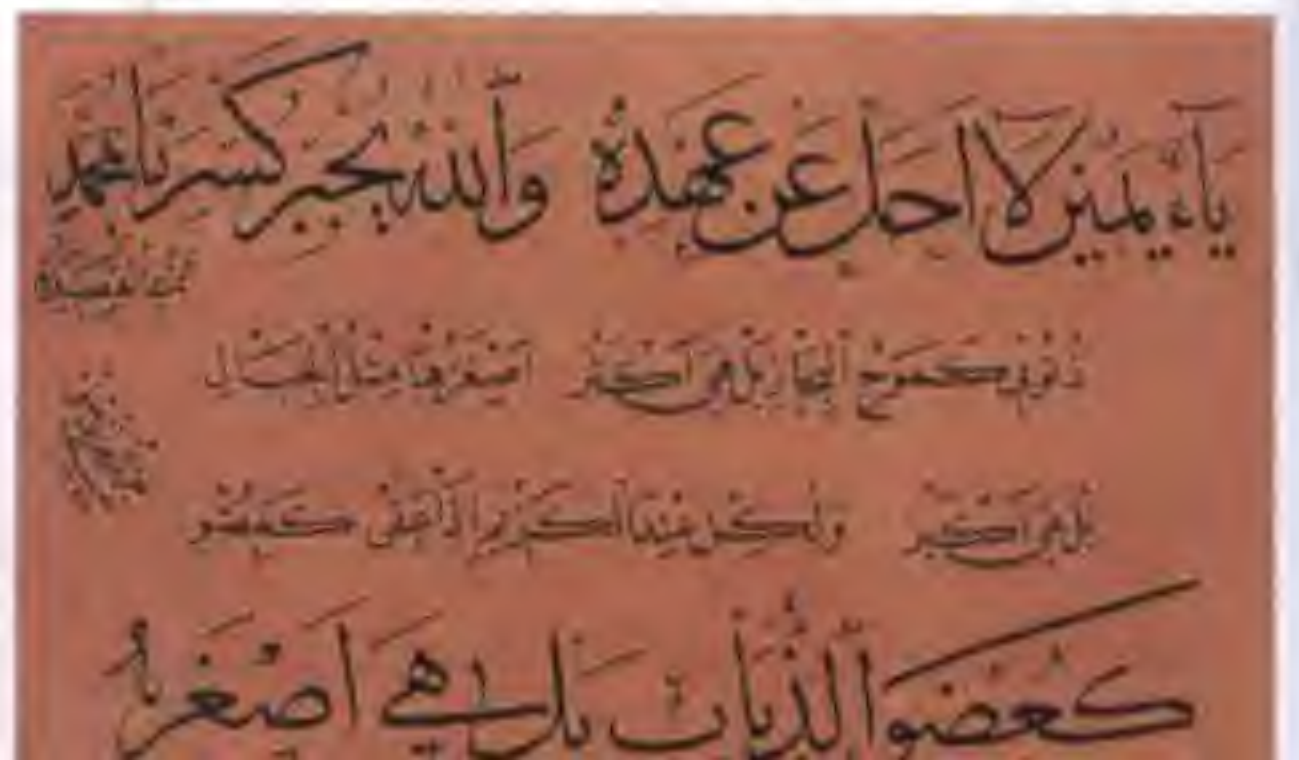 ياء يمين لا احل عن عهده والله يجبر كسرنا بمحمد
تمت القصيدة
ذنوبي كموج البحار بل هي اكثر اصغرها مثل الجبال
بل هي اكبر ولكن عند الكريم اذا عفى كعضو
كعضو الذباب بل هي اصغر